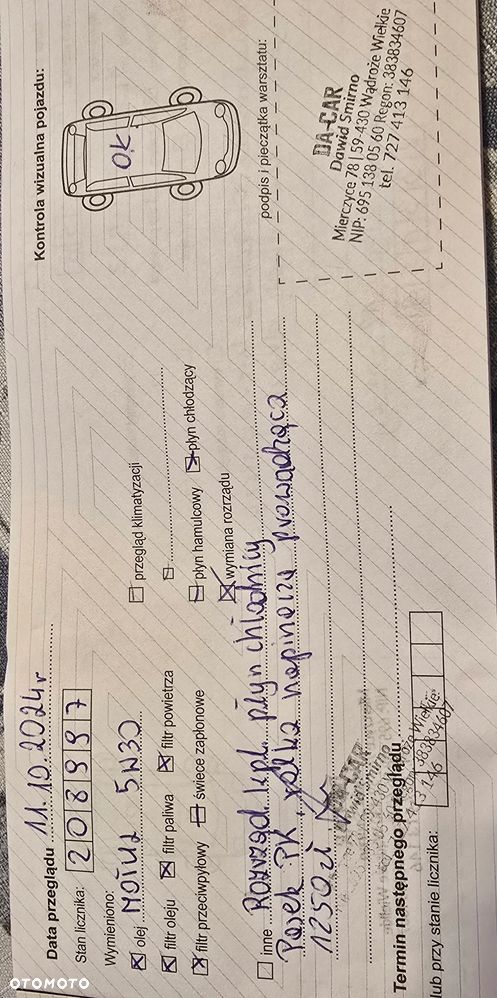 Data przeglądu 11.10.2024r
Kontrola wizualna pojazdu:
Stan licznika: 208997
OK
Wymieniono:
olej MOTUL 5W30
przegląd klimatyzacji
filtr oleju filtr paliwa filtr powietrza
filtr przeciwpyłowy świece zapłonowe
płyn hamulcowy płyn chłodzący
wymiana rozrządu
inne Rozrząd kpl. płyn chłodnicy
Pasek PK, rolka napinacza prowadząca
1250 zł
podpis i pieczątka warsztatu:
DA-CAR
Dawid Smirno
Mierczyce 78 | 59-430 Wądroże Wielkie
NIP: 695 138 05 60 Regon: 383834607
tel. 727 413 146
Termin następnego przeglądu
lub przy stanie licznika:
OTOMOTO